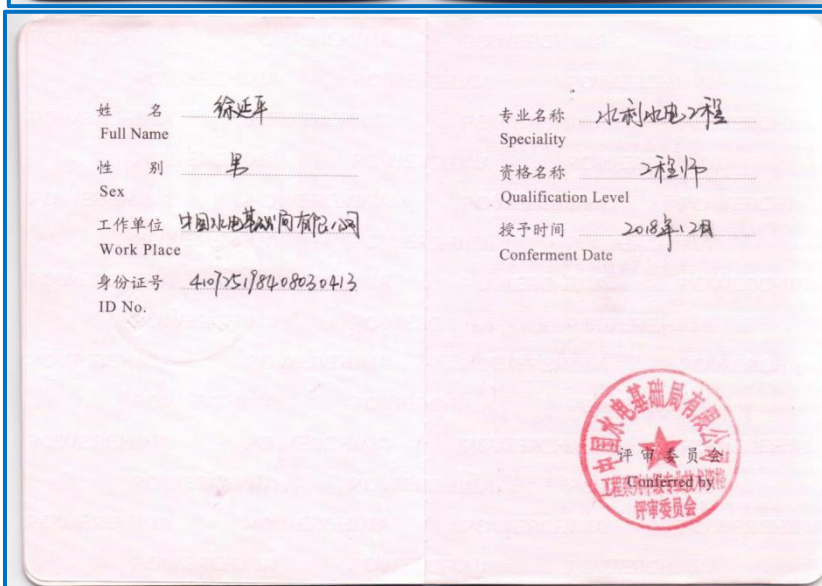 姓 名 徐延平
Full Name
性 别 男
Sex
工作单位 中国水电基础局有限公司
Work Place
身份证号 410725198408030413
ID No.
专业名称 水利水电工程
Speciality
资格名称 工程师
Qualification Level
授予时间 2018年12月
Conferment Date
中国水电基础局有限公司
评审委员会
Conferred by
工程系列中级专业技术资格
评审委员会